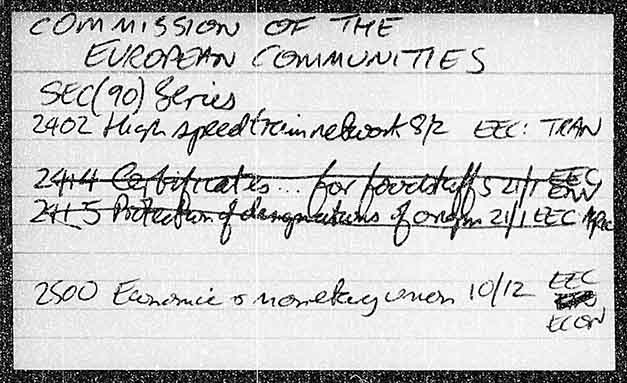 COMMISSION OF THE
EUROPEAN COMMUNITIES
SEC(90) Series
2402 High speed train network 8/2 EEC: TRAN
2414 Certificates... for foodstuffs 21/1 EEC
2415 Protection of designations of origin 21/1 EEC
2500 Economic & monetary union 10/12 EEC
ECON